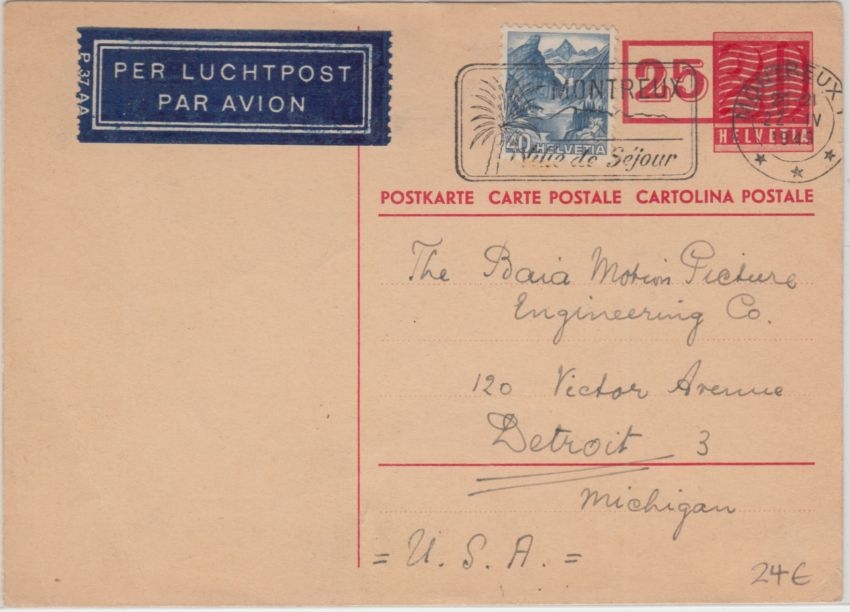 P. 37 AA
PER LUCHTPOST
PAR AVION
MONTREUX
Ville de Séjour
40 HELVETIA
25
MONTREUX 1
HELVETIA
POSTKARTE CARTE POSTALE CARTOLINA POSTALE
The Baia Motion Picture
Engineering Co.
120 Victor Avenue
Detroit 3
Michigan
= U. S. A. =
24€